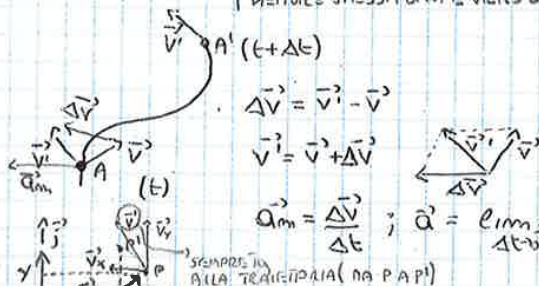 V⃗' A' (t+Δt)
ΔV⃗ = V⃗' - V⃗
ΔV⃗
V⃗' V⃗
V⃗' = V⃗ + ΔV⃗
V⃗' V⃗
a⃗m A
ΔV⃗
(t)
a⃗m = ΔV⃗/Δt ; a⃗ = lim Δt→
j⃗ V⃗x V⃗' V⃗y
y P
SEMPRE TG
ALLA TRAIETTORIA (DA P A P')